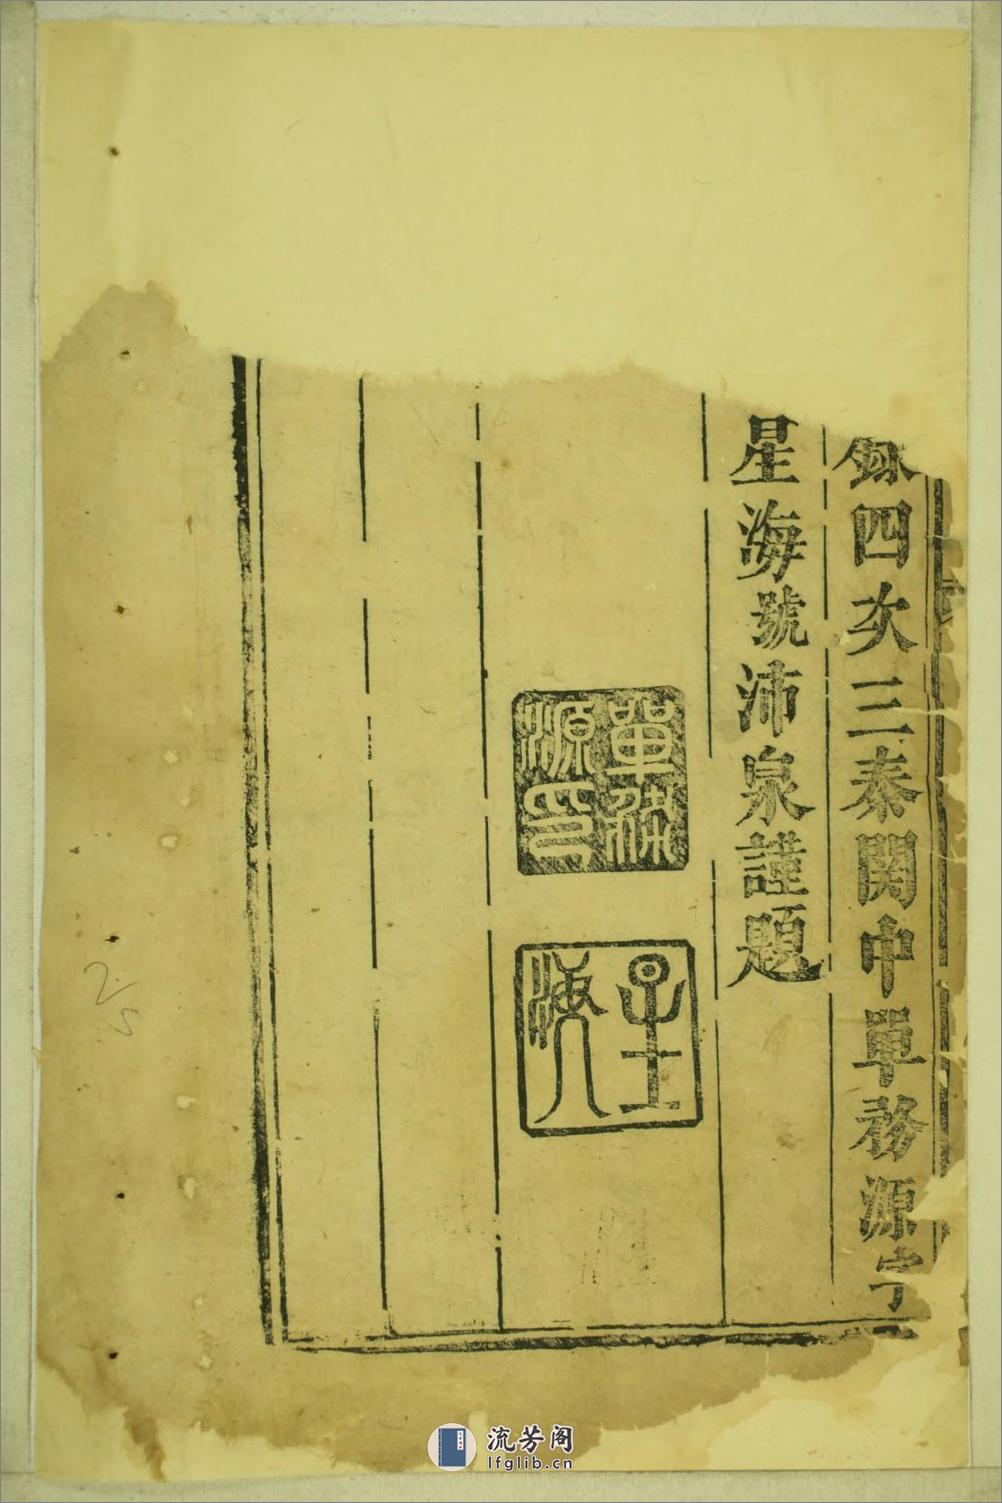 四次三秦関中單務源字
星海號沛泉謹題
單務源印
星海
2.5
流芳阁
lfglib.cn